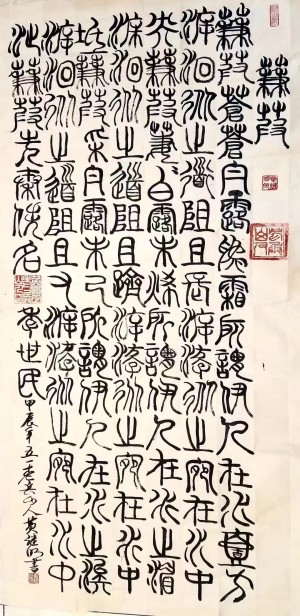 蒹葭
蒹葭蒼蒼白露為霜所謂伊人在水壹方
溯洄從之道阻且長溯游從之宛在水中
央蒹葭萋萋白露未晞所謂伊人在水之湄
溯洄從之道阻且躋溯游從之宛在水中
坻蒹葭采采白露未已所謂伊人在水之涘
溯洄從之道阻且右溯游從之宛在水中
沚蒹葭先秦佚名
李世民甲辰年五一山人黃書